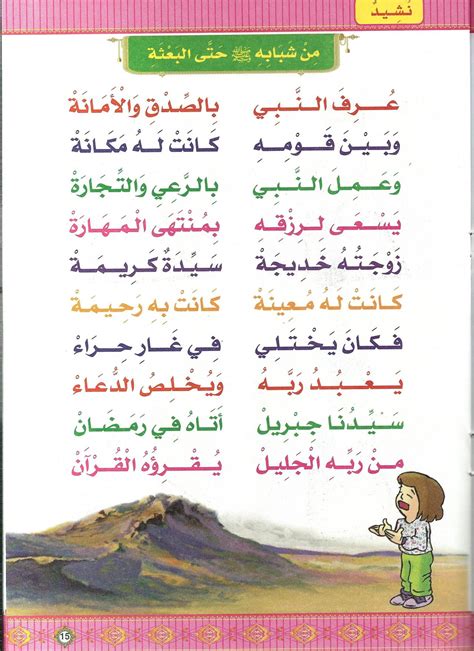 نَشِيدٌ
مِنْ شَبَابِهِ ﷺ حَتَّى البَعْثَة
عُرِفَ النَّبِي بِالصِّدْقِ وَالْأَمَانَةْ
وَبَيْنَ قَوْمِهِ كَانَتْ لَهُ مَكَانَةْ
وَعَمِلَ النَّبِي بِالرَّعِي وَالتِّجَارَةْ
يَسْعَى لِرِزْقِه بِمُنْتَهَى الْمَهَارَةْ
زَوْجَتُهُ خَدِيجَةْ سَيِّدَةٌ كَرِيمَةْ
كَانَتْ لَهُ مُعِينَةْ كَانَتْ بِهِ رَحِيمَةْ
فَكَانَ يَخْتَلِي فِي غَارِ حِرَاءْ
يَعْبُدُ رَبَّهُ وَيُخْلِصُ الدُّعَاءْ
سَيِّدُنَا جِبْرِيلْ أَتَاهُ فِي رَمَضَانْ
مِنْ رَبِّهِ الْجَلِيلْ يُقْرِؤُهُ الْقُرْآنْ
15